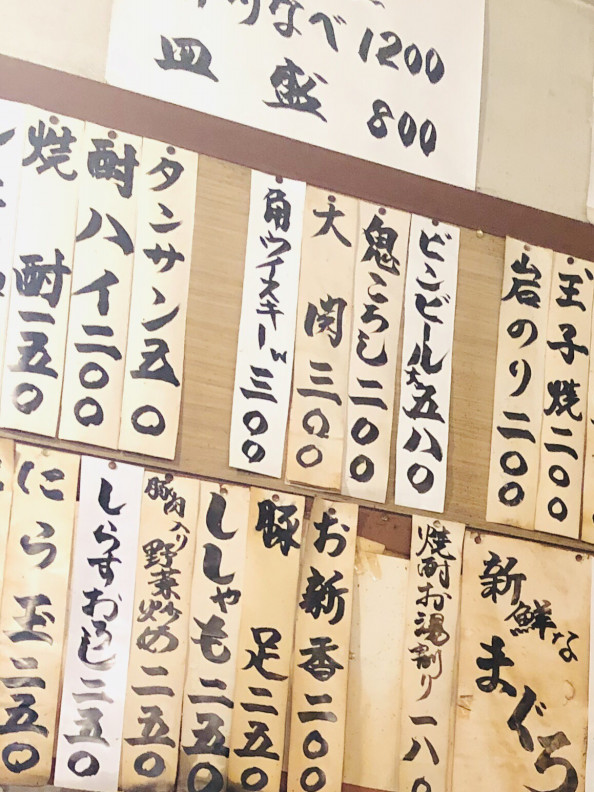 なべ 1200
皿盛 800
玉子焼二〇〇
岩のり二〇〇
ビンビール大五八〇
鬼ころし二〇〇
大関三〇〇
角ウイスキーW三〇〇
タンサン五〇
酎ハイ二〇〇
焼酎二五〇
新鮮な
まぐろ
焼酎お湯割り一八〇
お新香二〇〇
豚足二五〇
ししゃも二五〇
豚肉入り野菜炒め二五〇
しらすおろし二五〇
にら玉二五〇